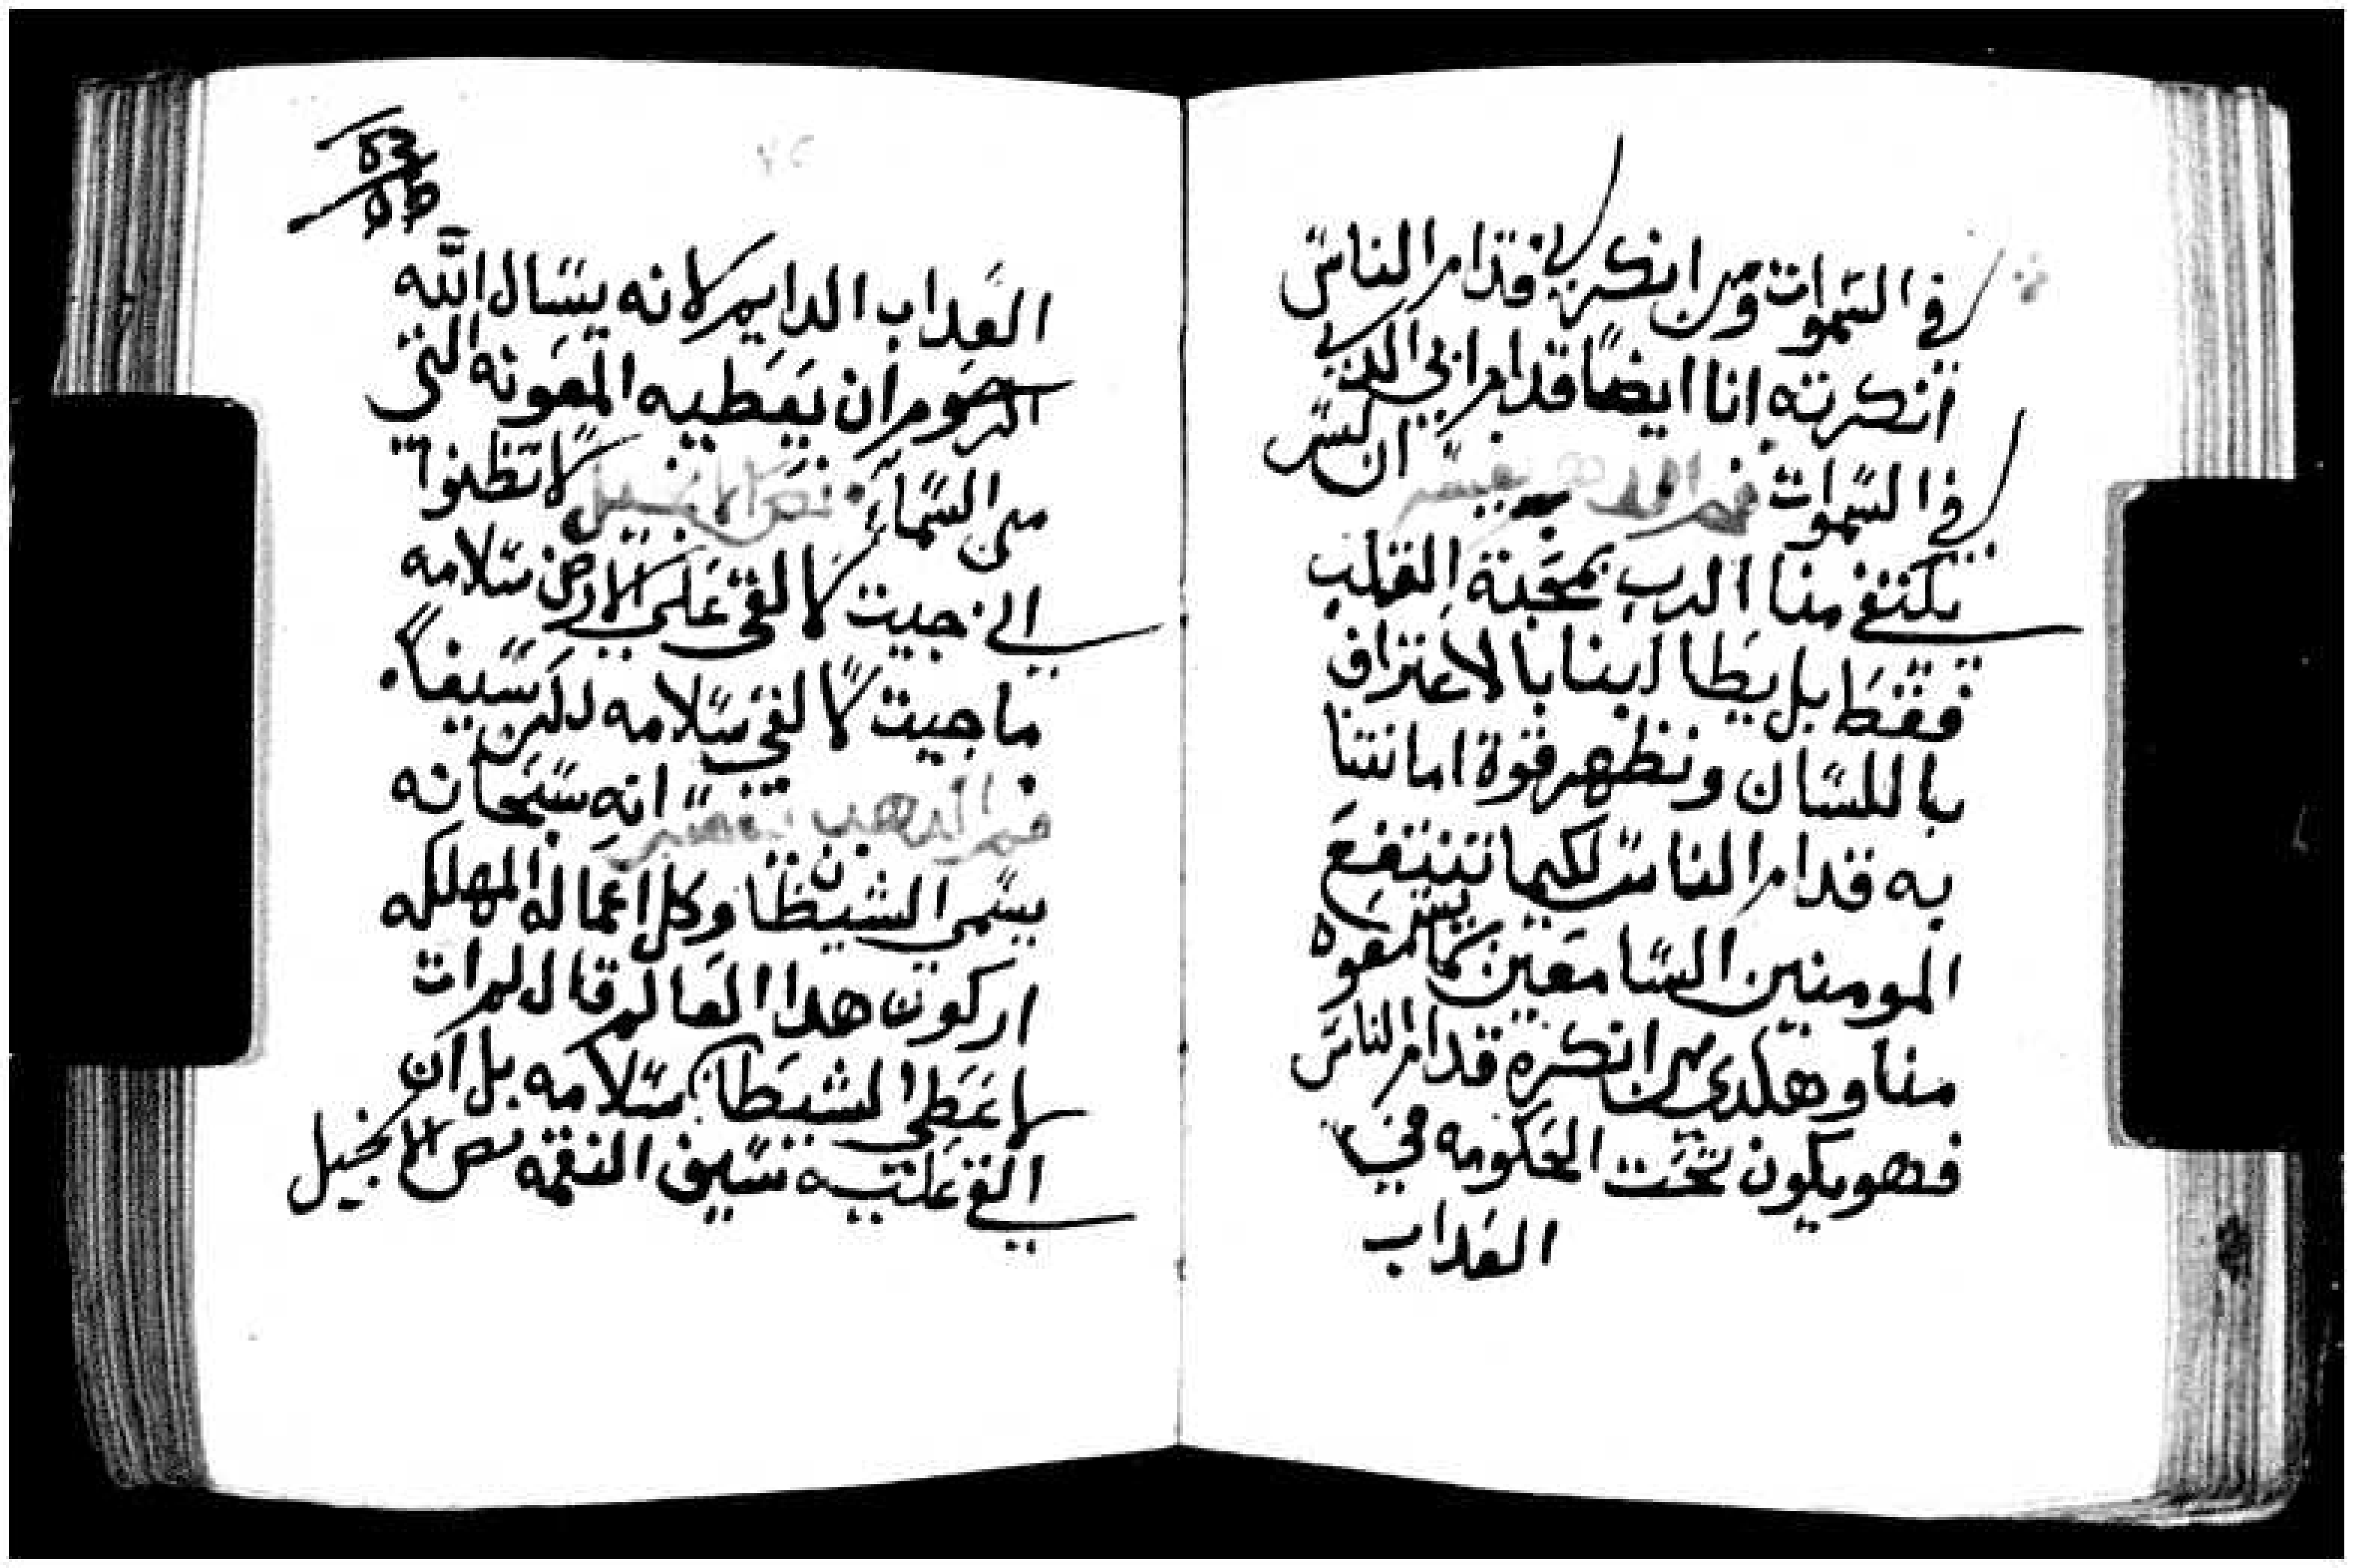 في السموات ومن انكرني قدام الناس
انكرته انا ايضًا قدام ابي الدي
في السموات فم الدهب يفسر ان ليس
يكتفي منا الرب بمحبة القلب
فقط بل يطالبنا بالاعتراف
باللسان ونظهر قوة امانتنا
به قدام الناس لكيما تنتفع
المومنين السامعين بما يسمعوه
منا وهكدي من انكره قدام الناس
فهو يكون تحت الحكومه في
العداب
العداب الدايم لانه يسال الله
المرحوم ان يعطيه المعونه التي
من السماء نص الانجيل لا تظنوا
اني جيت لالقي علي الارض سلامه
ما جيت لالقي سلامه لكن سيفًا
فم الدهب يفسر انه سبحانه
يسمي الشيطان وكل اعماله المهلكه
اركون هدا العالم قال لم ات
لاعطي الشيطان سلامه بل ان
القي عليه سيف النقمه نص الانجيل